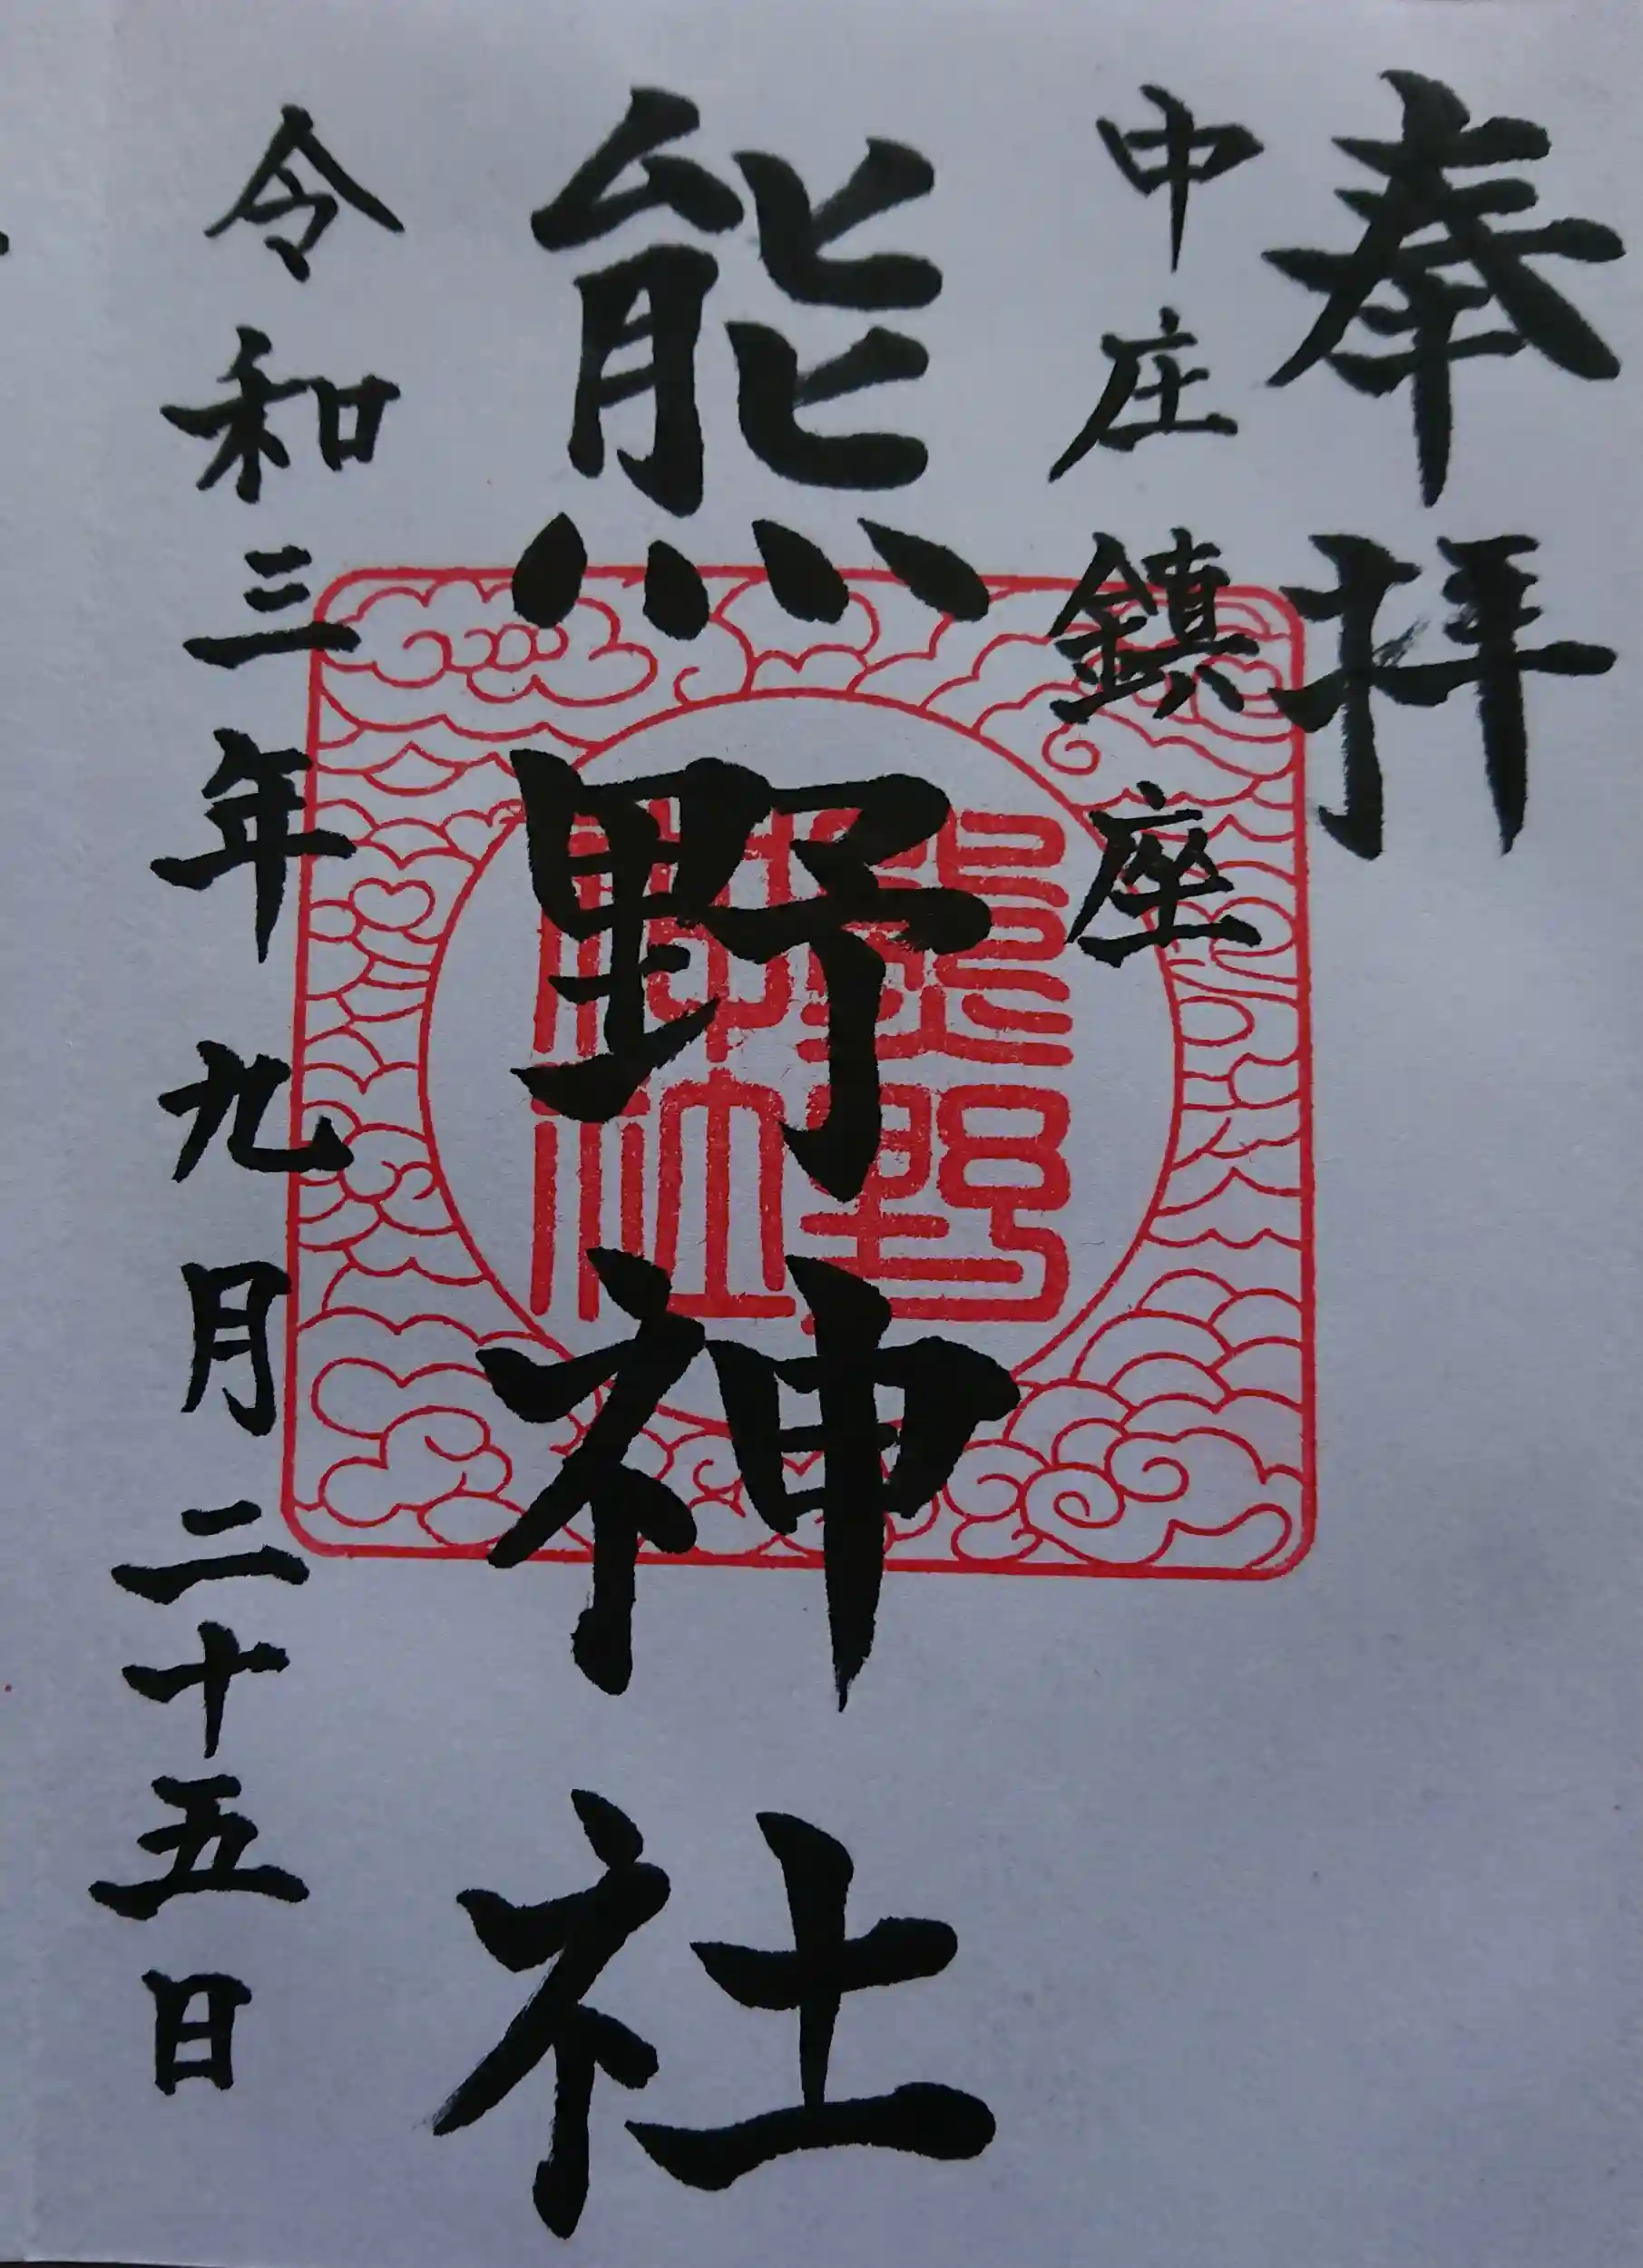 奉拝
中庄鎮座
熊野神社
令和三年九月二十五日
熊野神社